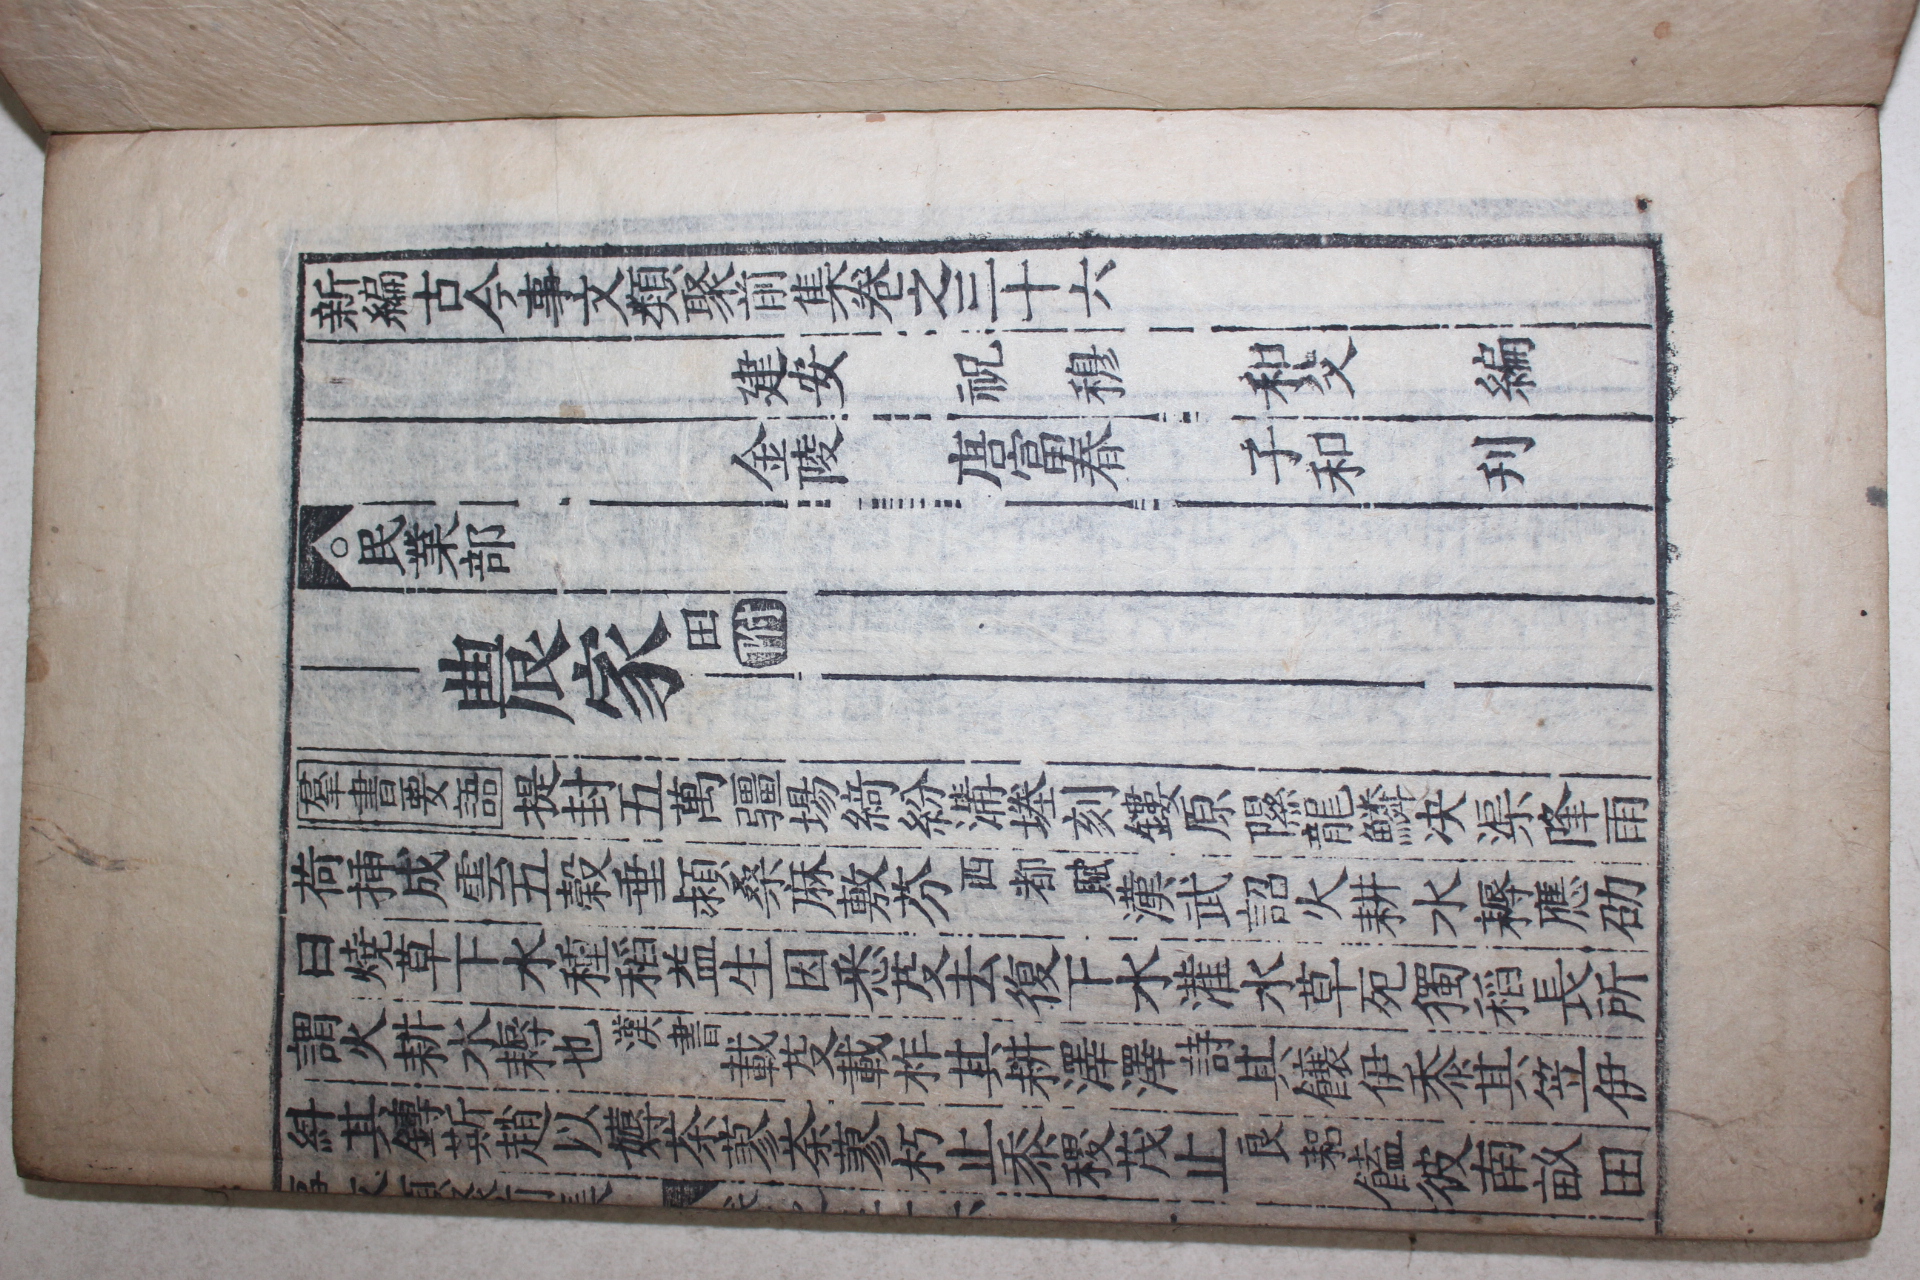 新編古今事文類聚前集卷之三十六
建安 祝 穆 和父 編
金陵 唐富春 子和 刋
民業部
農家 田附
羣書要語 提封五萬疆埸綺紛溝塍刻鏤原隰龍鱗决渠降雨
荷揷成雲五糓垂頴桑麻敷芬 西都賦 漢武詔火耕水耨應劭
曰燒草下水種稻草益生因悉芟去復下水灌水草死獨稻長所
謂火耕水耨也 漢書 載芟載柞其耕澤澤 詩 其饟伊黍其笠伊
糾其鎛斯趙以薅荼蓼荼蓼朽止黍稷茂止 良耜 饁彼南畝田